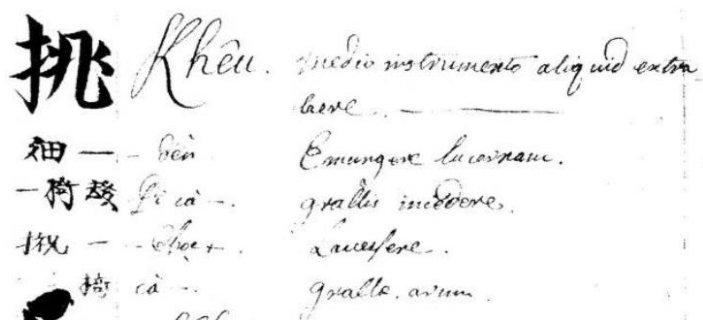 挑 Khêu. medio instrumento aliquid extra
here. —
畑 — – đèn Emungere lucernam.
Đi cà –. grallis incedere.
– – Chọc –. Lacessere.
cà –. grallæ. arum.